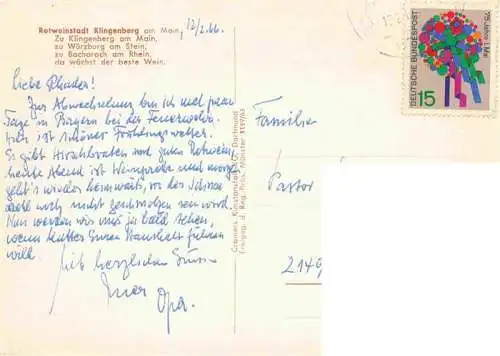 Rotweinstadt Klingenberg am Main, 12/2.66.
Zu Klingenberg am Main,
zu Würzburg am Stein,
zu Bacharach am Rhein,
da wächst der beste Wein.
Liebe
Zur Abwechslung bin ich mal paar
Tage in bei der Feuerwache.
Hier ist schönes Frühlingswetter.
Es gibt Hirschbraten und guten Rotwein,
heute Abend ist Weinprobe und morgen
geht's wieder heimwärts, wo der Schnee
wohl noch nicht geschmolzen sein wird.
Nun werden wir uns ja bald sehen,
wenn Mutter Euren Haushalt führen
will.
Mit herzlichen Grüssen
Euer Opa.
Cramers Kunstanstalt KG, Dortmund
Freigeg. d. Reg. Präs. Münster
Familie
Pastor
2149
DEUTSCHE BUNDESPOST
75 Jahre 1. Mai
15